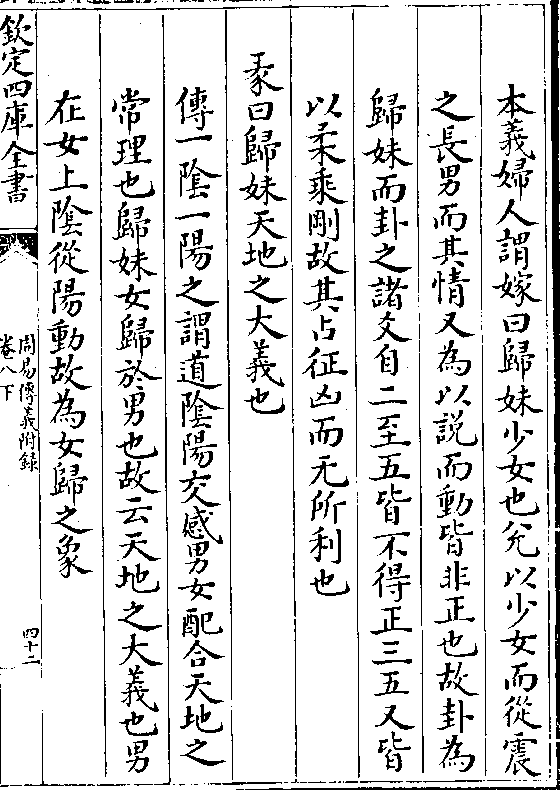 本義婦人謂嫁曰歸妹少女也兊以少女而從震
之長男而其情又為以説而動皆非正也故卦為
歸妹而卦之諸爻自二至五皆不得正三五又皆
以柔乗剛故其占征凶而无所利也
彖曰歸妹天地之大義也
傳一隂一陽之謂道隂陽交感男女配合天地之
常理也歸妹女歸於男也故云天地之大義也男
在女上隂從陽動故為女歸之象
欽定四庫全書
周易傳義附録
卷八下
四十二